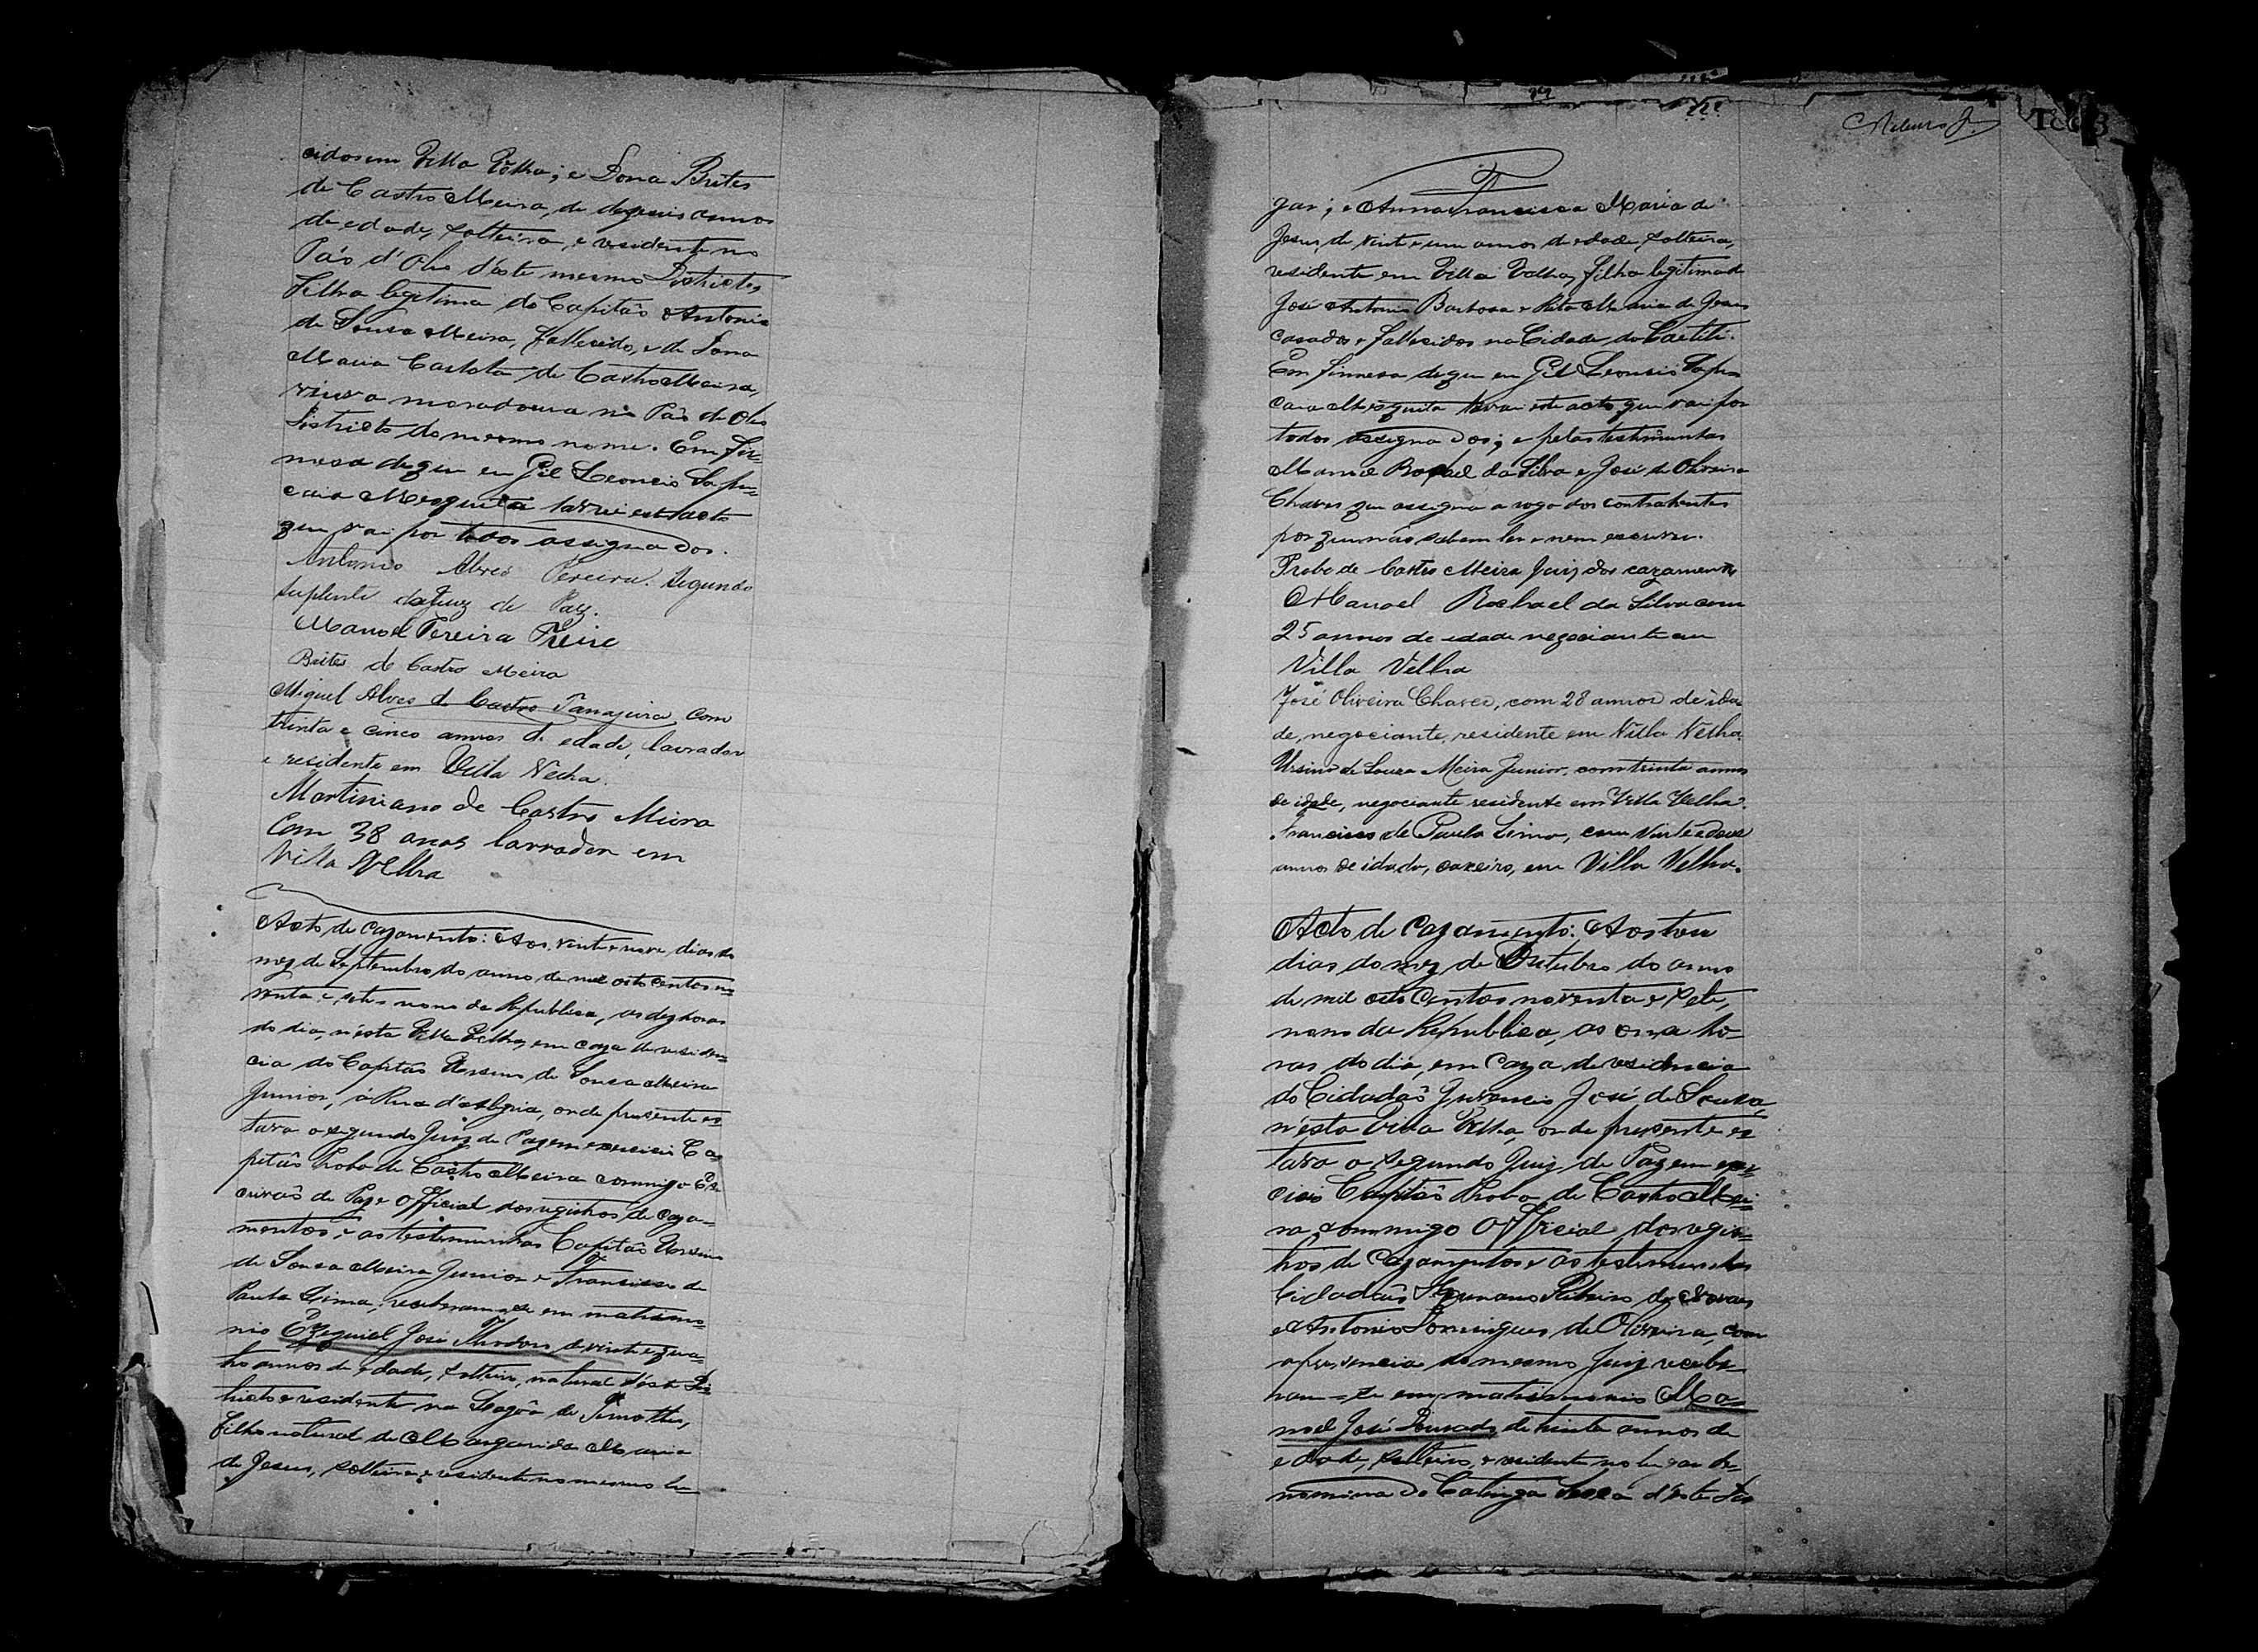 cidos em Villa Velha; e Dona Brites
de Castro Meira, de dezeseis annos
de edade, solteira, e residente no
Páo d'Olio d'este mesmo Districto,
Filha legitima do Capitão Antonio
de Sousa Meira, fallecido, e de Dona
Maria Carlota de Castro Meira,
viuva moradoura no Páo d'Olio
Districto do mesmo nome. Em fir-
mesa do que eu Gil Leoncio Sapu-
caia Mesquita lavrei este acto
que vai por todos assignados.
Antonio Alves Pereira. Segundo
suplente do Juiz de Paz.
Manoel Pereira Freire
Brites de Castro Meira
Miguel Alves de Castro Tanajura, com
trinta e cinco annos de edade, lavrador
e residente em Villa Velha.
Martiniano de Castro Meira
Com 38 anos lavrador em
Villa Velha
Acto de Cazamento: Aos vinte e nove dias do
mez de Septembro do anno de mil oito centos no-
venta e sete, nono da Republica, as dez horas
do dia, n'ésta Villa Velha, em caza de residen-
cia do Capitão Ursino de Sousa Meira
Junior, á Rua d'Alegria, onde presente es-
tava o segundo Juiz de Paz em exercicio Ca-
pitão Probo de Castro Meira commigo Es-
crivão de Paz e Official dos registros de caza-
mentos, e as testemunhas Capitão Ursino
de Sousa Meira Junior e Francisco de
Paula Lima, receberam-se em matrimo-
nio Ezequiel José Theodoro, de vinte e qua-
tro annos de edade, solteiro, natural d'éste Dis-
tricto e residente na Lagôa de Timotheo,
filho natural de Margarida Maria
de Jesus, solteira, e residente no mesmo lu-
Ribeiro Jr.
gar; e Anna Francisca Maria de
Jesus, de vinte e um annos de edade, solteira,
residente em Villa Velha, filha legitima de
José Antonio Barbosa e Rita Maria de Jesus
casados e fallecidos na Cidade do Caetité.
Em firmesa do que eu Gil Leoncio Sapu-
caia Mesquita lavrei este acto que vai por
todos assignados; e pelas testemunhas
Manoel Rachael da Silva e José de Oliveira
Chaves que assigna a rogo dos contrahentes
por que não sabem ler e nem escrever.
Probo de Castro Meira Juiz dos cazamentos
Manoel Rachael da Silva com
25 annos de edade negociante em
Villa Velha
José Oliveira Chaves, com 28 annos de ida-
de, negociante, residente em Villa Velha.
Ursino de Souza Meira Junior, com trinta annos
de idade, negociante residente em Villa Velha.
Francisco de Paula Lima, com vinte e dous
annos de idade, caxeiro, em Villa Velha.
Acto de Cazamento: Aos tres
dias do mez de Outubro do anno
de mil oito centos noventa e sete,
nono da Republica, as onze ho-
ras do dia, em Caza de residencia
do Cidadão Juvencio José de Souza,
n'ésta Villa Velha, onde presente es-
tava o segundo Juiz de Paz em exer-
cicio Capitão Probo de Castro Mei-
ra commigo Official dos regis-
tros de Cazamentos e as testemunhas
Cidadãos Ribeiro de Novaes
e Antonio Domingues de Oliveira, com
a presencia do mesmo Juiz recebe-
ram-se em matrimonio Ma-
noel José Dourado, de trinta annos de
edade, solteiro, e residente no lugar de-
nominado Catinga Secca d'este Dis